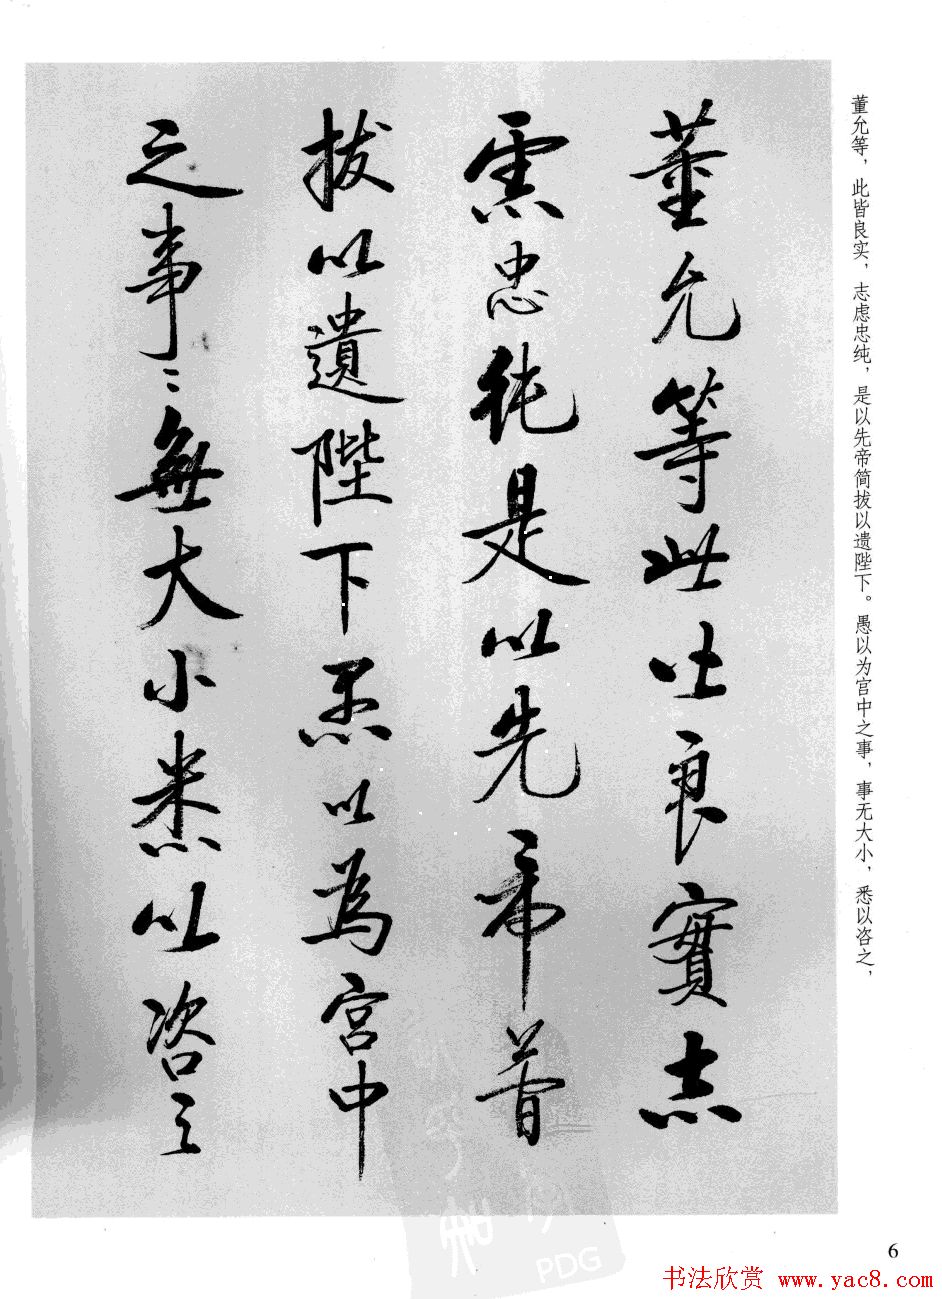 董允等，此皆良实，志虑忠纯，是以先帝简拔以遗陛下。愚以为宫中之事，事无大小，悉以咨之，
董允等此皆良實志
慮忠純是以先帝簡
拔以遺陛下愚以為宮中
之事〻無大小悉以咨之
6
PDG
书法欣赏 www.yac8.com